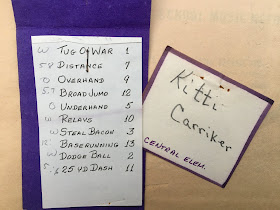 W TUG O' WAR 1
5.4 DISTANCE 7
0 OVERHAND 9
5.7 BROAD JUMP 12
0 UNDERHAND 5
W RELAYS 10
W STEAL BACON 3
BASERUNNING 13
W DODGE BALL 2
25 YD DASH 11
Kitti
Carriker
CENTRAL ELEM.